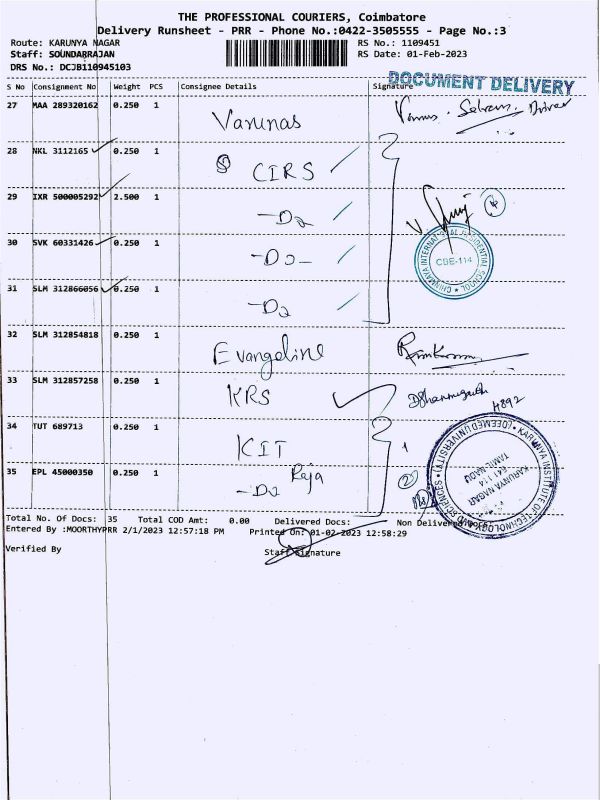 THE PROFESSIONAL COURIERS, Coimbatore
Delivery Runsheet - PRR - Phone No.:0422-3505555 - Page No.:3
Route: KARUNYA NAGAR
Staff: SOUNDARRAJAN
DRS No.: DCJB110945103
RS No.: 1109451
RS Date: 01-Feb-2023
DOCUMENT DELIVERY
S No Consignment No Weight PCS Consignee Details Signature
27 MAA 289320162 0.250 1
28 NKL 3112165 0.250 1 CIRS
29 IXR 500005292 2.500 1 -Do
30 SVK 60331426 0.250 1 -Do-
31 SLM 312866056 0.250 1 -Do
CHINMAYA INTERNATIONAL RESIDENTIAL SCHOOL
CBE-114
32 SLM 312854818 0.250 1 Evangeline
33 SLM 312857258 0.250 1 KRS
34 TUT 689713 0.250 1 KIT
35 EPL 45000350 0.250 1 -Do Raja
KARUNYA INSTITUTE OF TECHNOLOGY AND SCIENCES
(DEEMED UNIVERSITY)
KARUNYA NAGAR
641 114
TAMIL NADU
Total No. Of Docs: 35 Total COD Amt: 0.00 Delivered Docs: Non Delivered Docs:
Entered By :MOORTHYPRR 2/1/2023 12:57:18 PM Printed On: 01-02-2023 12:58:29
Verified By Staff Signature